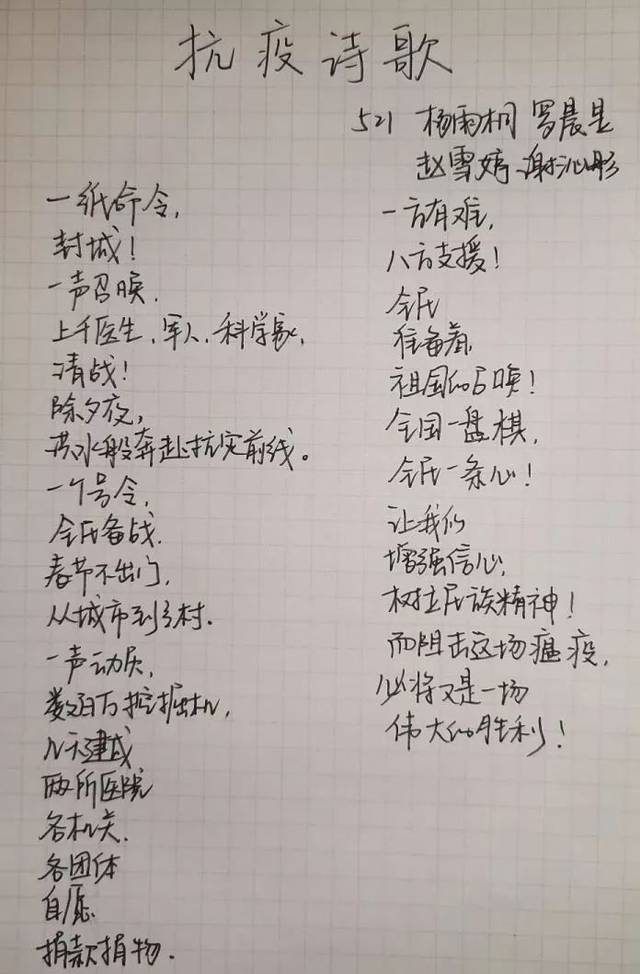 抗疫诗歌
521 杨雨桐 罗晨星
赵雪婷 谢沁彤
一纸命令,
封城!
一声召唤.
上千医生、军人、科学家,
请战!
除夕夜,
洪水般奔赴抗灾前线。
一个号令,
全民备战.
春节不出门,
从城市到乡村.
一声动员,
数百万挖掘机,
几天建成
两所医院
各机关.
各团体
自愿
捐款捐物.
一方有难,
八方支援!
全民
准备着,
祖国的召唤!
全国一盘棋,
全民一条心!
让我们
增强信心,
树立民族精神!
而阻击这场瘟疫,
必将又是一场
伟大的胜利!